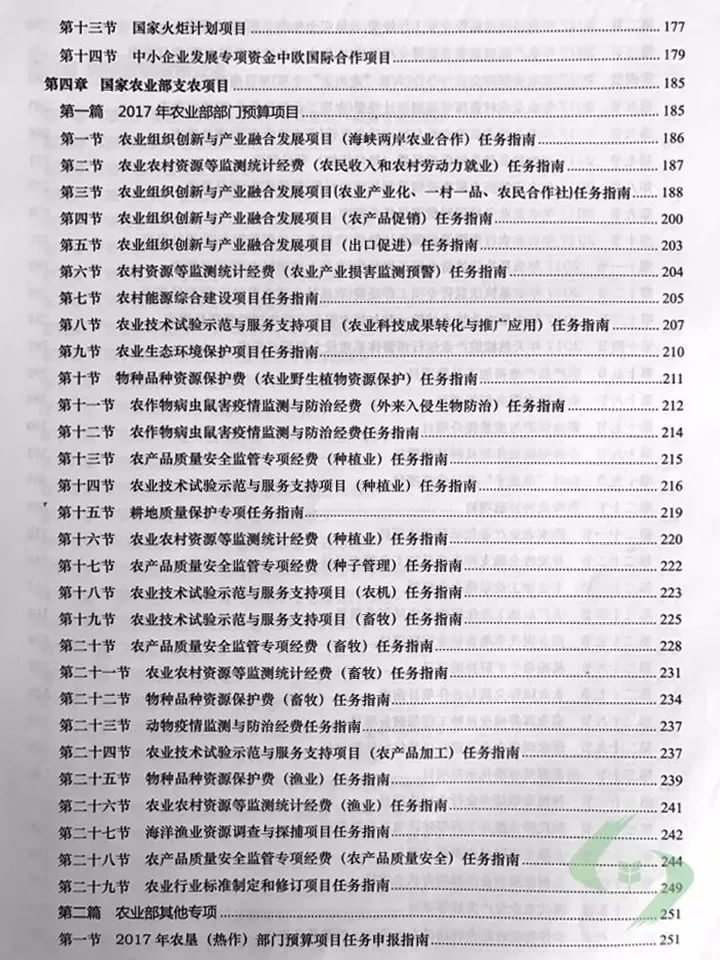 第十三节 国家火炬计划项目 177
第十四节 中小企业发展专项资金中欧国际合作项目 179
第四章 国家农业部支农项目 185
第一篇 2017年农业部部门预算项目 185
第一节 农业组织创新与产业融合发展项目（海峡两岸农业合作）任务指南 186
第二节 农业农村资源等监测统计经费（农民收入和农村劳动力就业）任务指南 187
第三节 农业组织创新与产业融合发展项目(农业产业化、一村一品、农民合作社)任务指南 188
第四节 农业组织创新与产业融合发展项目（农产品促销）任务指南 200
第五节 农业组织创新与产业融合发展项目（出口促进）任务指南 203
第六节 农村资源等监测统计经费（农业产业损害监测预警）任务指南 204
第七节 农村能源综合建设项目任务指南 205
第八节 农业技术试验示范与服务支持项目（农业科技成果转化与推广应用）任务指南 207
第九节 农业生态环境保护项目任务指南 210
第十节 物种品种资源保护费（农业野生植物资源保护）任务指南 211
第十一节 农作物病虫鼠害疫情监测与防治经费（外来入侵生物防治）任务指南 212
第十二节 农作物病虫鼠害疫情监测与防治经费任务指南 214
第十三节 农产品质量安全监管专项经费（种植业）任务指南 215
第十四节 农业技术试验示范与服务支持项目（种植业）任务指南 216
第十五节 耕地质量保护专项任务指南 219
第十六节 农业农村资源等监测统计经费（种植业）任务指南 220
第十七节 农产品质量安全监管专项经费（种子管理）任务指南 222
第十八节 农业技术试验示范与服务支持项目（农机）任务指南 223
第十九节 农业技术试验示范与服务支持项目（畜牧）任务指南 225
第二十节 农产品质量安全监管专项经费（畜牧）任务指南 228
第二十一节 农业农村资源等监测统计经费（畜牧）任务指南 231
第二十二节 物种品种资源保护费（畜牧）任务指南 234
第二十三节 动物疫情监测与防治经费任务指南 237
第二十四节 农业技术试验示范与服务支持项目（农产品加工）任务指南 237
第二十五节 物种品种资源保护费（渔业）任务指南 239
第二十六节 农业农村资源等监测统计经费（渔业）任务指南 241
第二十七节 海洋渔业资源调查与探捕项目任务指南 242
第二十八节 农产品质量安全监管专项经费（农产品质量安全）任务指南 244
第二十九节 农业行业标准制定和修订项目任务指南 249
第二篇 农业部其他专项 251
第一节 2017年农垦（热作）部门预算项目任务申报指南 251